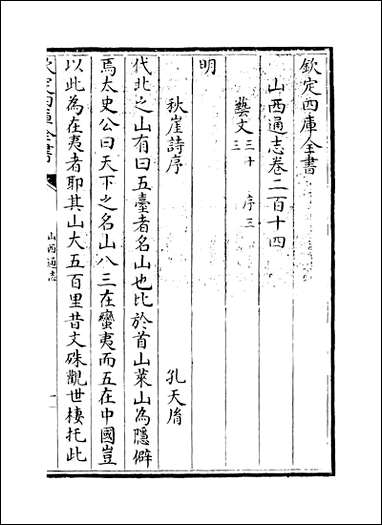 欽定四庫全書
山西通志卷二百十四
藝文三十三 序三
明
秋崖詩序 孔天胤
代北之山有曰五臺者名山也比於首山萊山為隱僻
焉太史公曰天下之名山八三在蠻夷而五在中國豈
以此為在夷者耶其山大五百里昔文殊觀世棲托此
欽定四庫全書
山西通志
一